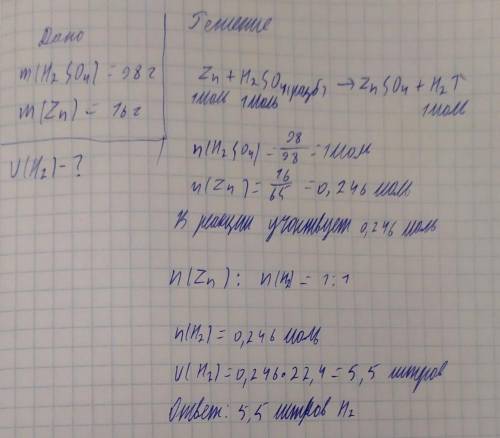 Дано
m(H₂SO₄) = 98 г
m(Zn) = 16 г
V(H₂) - ?
Решение
Zn + H₂SO₄(разб) → ZnSO₄ + H₂↑
1моль 1моль 1моль
n(H₂SO₄) = 98/98 = 1 моль
n(Zn) = 16/65 = 0,246 моль
В реакции участвует 0,246 моль
n(Zn) : n(H₂) = 1:1
n(H₂) = 0,246 моль
V(H₂) = 0,246 • 22,4 = 5,5 литров
Ответ: 5,5 литров H₂